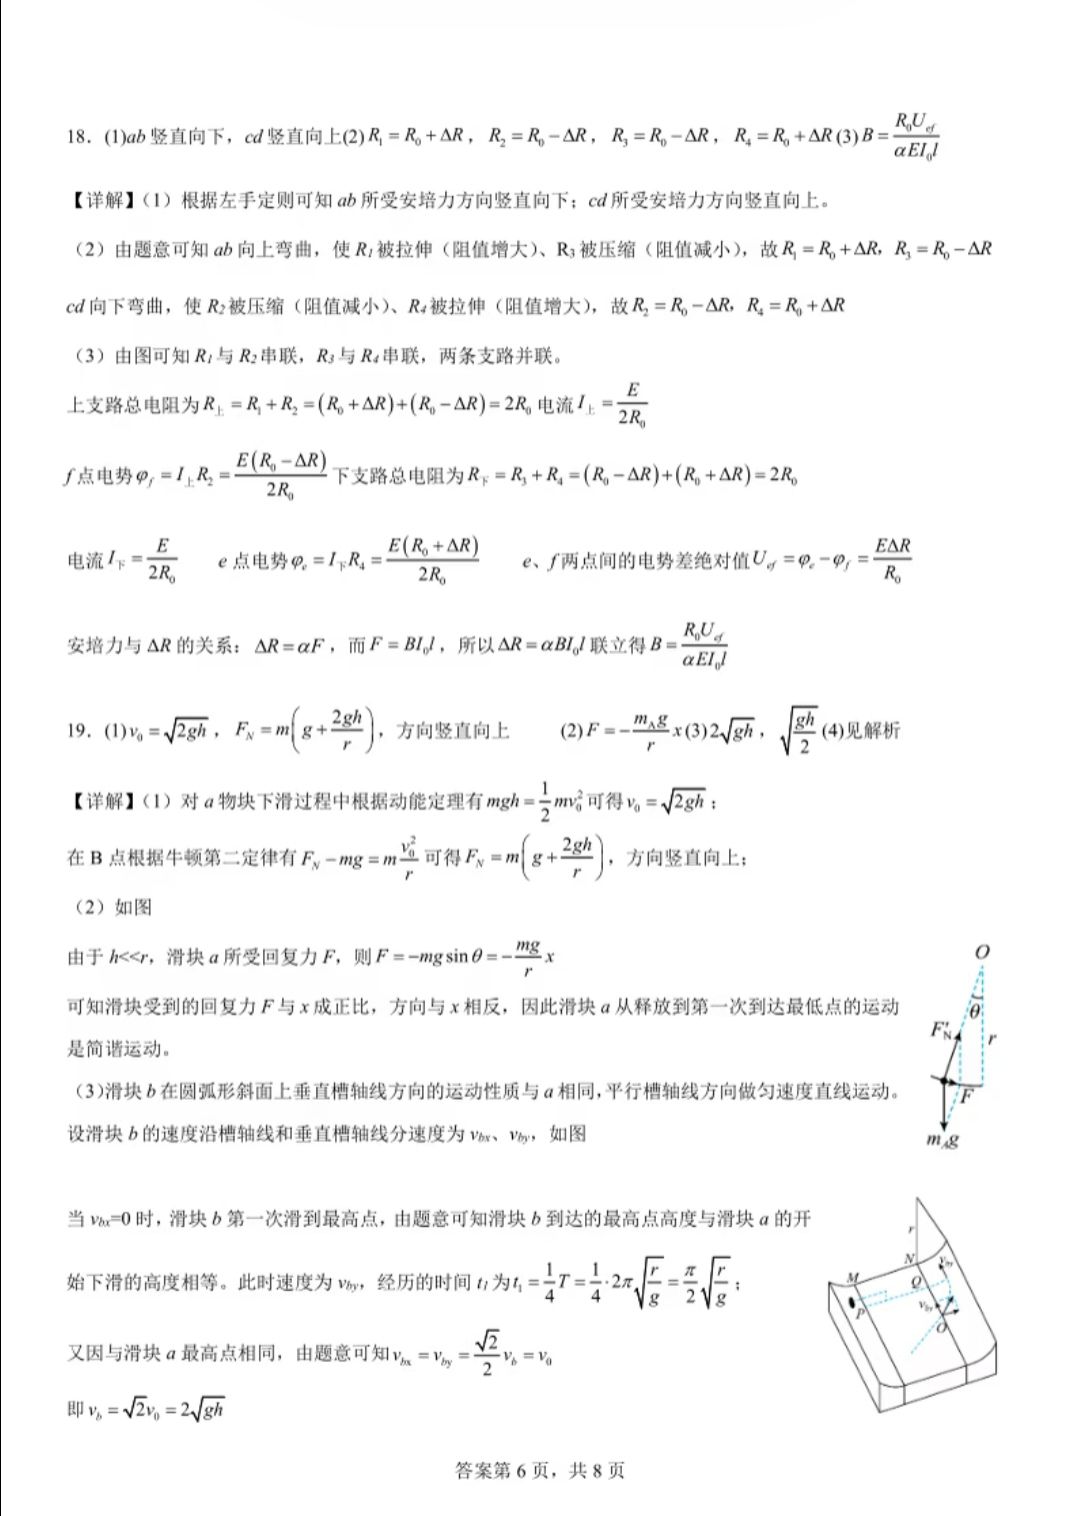 18. (1)ab 竖直向下，cd 竖直向上(2) R₁ = R₀ + ΔR，R₂ = R₀ − ΔR，R₃ = R₀ − ΔR，R₄ = R₀ + ΔR (3) B = R₀U_ef/(αEI₀l)
【详解】（1）根据左手定则可知 ab 所受安培力方向竖直向下；cd 所受安培力方向竖直向上。
（2）由题意可知 ab 向上弯曲，使 R₁ 被拉伸（阻值增大）、R₃ 被压缩（阻值减小），故 R₁ = R₀ + ΔR，R₃ = R₀ − ΔR
cd 向下弯曲，使 R₂ 被压缩（阻值减小）、R₄ 被拉伸（阻值增大），故 R₂ = R₀ − ΔR，R₄ = R₀ + ΔR
（3）由图可知 R₁ 与 R₂ 串联，R₃ 与 R₄ 串联，两条支路并联。
上支路总电阻为 R上 = R₁ + R₂ = (R₀ + ΔR) + (R₀ − ΔR) = 2R₀ 电流 I上 = E/(2R₀)
f 点电势 φ_f = I上R₂ = E(R₀ − ΔR)/(2R₀) 下支路总电阻为 R下 = R₃ + R₄ = (R₀ − ΔR) + (R₀ + ΔR) = 2R₀
电流 I下 = E/(2R₀) e 点电势 φ_e = I下R₄ = E(R₀ + ΔR)/(2R₀) e、f 两点间的电势差绝对值 U_ef = φ_e − φ_f = EΔR/R₀
安培力与 ΔR 的关系：ΔR = αF，而 F = BI₀l，所以 ΔR = αBI₀l 联立得 B = R₀U_ef/(αEI₀l)
19. (1) v₀ = √(2gh)，F_N = m(g + 2gh/r)，方向竖直向上 (2) F = −(m_A g/r)x (3) 2√(gh)，√(gh/2) (4)见解析
【详解】（1）对 a 物块下滑过程中根据动能定理有 mgh = ½mv₀² 可得 v₀ = √(2gh)；
在 B 点根据牛顿第二定律有 F_N − mg = m v₀²/r 可得 F_N = m(g + 2gh/r)，方向竖直向上；
（2）如图
由于 h<<r，滑块 a 所受回复力 F，则 F = −mg sin θ = −(mg/r)x
可知滑块受到的回复力 F 与 x 成正比，方向与 x 相反，因此滑块 a 从释放到第一次到达最低点的运动
是简谐运动。
O
θ
F'_N
r
F
m_A g
（3）滑块 b 在圆弧形斜面上垂直槽轴线方向的运动性质与 a 相同，平行槽轴线方向做匀速度直线运动。
设滑块 b 的速度沿槽轴线和垂直槽轴线分速度为 v_bx、v_by，如图
当 v_bx=0 时，滑块 b 第一次滑到最高点，由题意可知滑块 b 到达的最高点高度与滑块 a 的开
始下滑的高度相等。此时速度为 v_by，经历的时间 t₁ 为 t₁ = ¼T = ¼·2π√(r/g) = (π/2)√(r/g)；
又因与滑块 a 最高点相同，由题意可知 v_bx = v_by = (√2/2)v_b = v₀
即 v_b = √2v₀ = 2√(gh)
r
N
M
Q
P
O
答案第 6 页，共 8 页